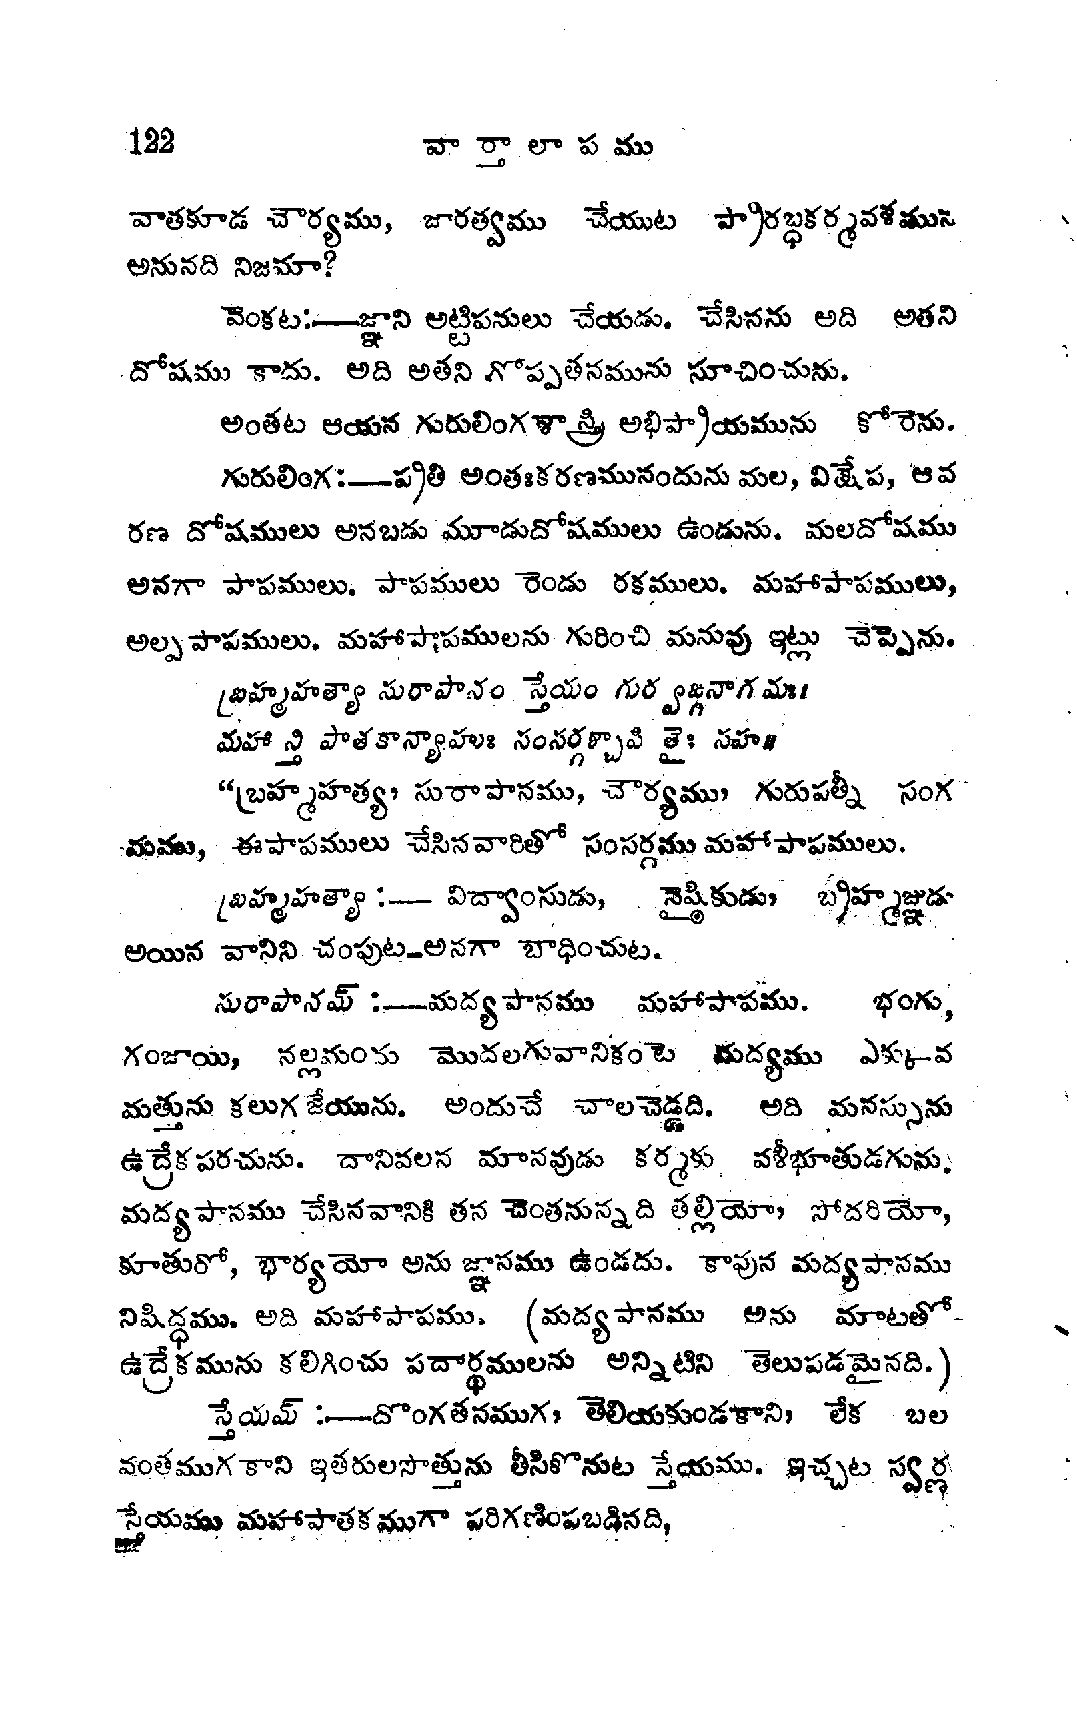 122 వార్తాలాపము
వాతకూడ చౌర్యము, జారత్వము చేయుట ప్రారబ్ధకర్మవశమున
అనునది నిజమా?
వెంకట:—జ్ఞాని అట్టిపనులు చేయడు. చేసినను అది అతని
దోషము కాదు. అది అతని గోప్పతనమును సూచించును.
అంతట ఆయన గురులింగశాస్త్రి అభిప్రాయమును కోరెను.
గురులింగ:—ప్రతి అంతఃకరణమునందును మల, విక్షేప, ఆవ
రణ దోషములు అనబడు మూడుదోషములు ఉండును. మలదోషము
అనగా పాపములు. పాపములు రెండు రకములు. మహాపాపములు,
అల్పపాపములు. మహాపాపములను గురించి మనువు ఇట్లు చెప్పెను.
బ్రహ్మహత్యా సురాపానం స్తేయం గుర్వఙ్గనాగమః।
మహాన్తి పాతకాన్యాహుః సంసర్గశ్చాపి తైః సహ॥
“బ్రహ్మహత్య, సురాపానము, చౌర్యము, గురుపత్నీ సంగ
మము, ఈపాపములు చేసినవారితో సంసర్గము మహాపాపములు.
బ్రహ్మహత్యా :— విద్వాంసుడు, నైష్ఠికుడు, బ్రహ్మజ్ఞుడు
అయిన వానిని చంపుట-అనగా బాధించుట.
సురాపానమ్ :—మద్యపానము మహాపాపము. భంగు,
గంజాయి, నల్లమందు మొదలగువానికంటె మద్యము ఎక్కువ
మత్తును కలుగజేయును. అందుచే చాలచెడ్డది. అది మనస్సును
ఉద్రేకపరచును. దానివలన మానవుడు కర్మకు వశీభూతుడగును.
మద్యపానము చేసినవానికి తన చెంతనున్నది తల్లియో, సోదరియో,
కూతురో, భార్యయో అను జ్ఞానము ఉండదు. కావున మద్యపానము
నిషిద్ధము. అది మహాపాపము. (మద్యపానము అను మాటతో-
ఉద్రేకమును కలిగించు పదార్థములను అన్నిటిని తెలుపడమైనది.)
స్తేయమ్ :—దొంగతనముగ, తెలియకుండకాని, లేక బల
వంతముగకాని ఇతరులసొత్తును తీసికొనుట స్తేయము. ఇచ్చట స్వర్ణ
స్తేయము మహాపాతకముగా పరిగణింపబడినది,